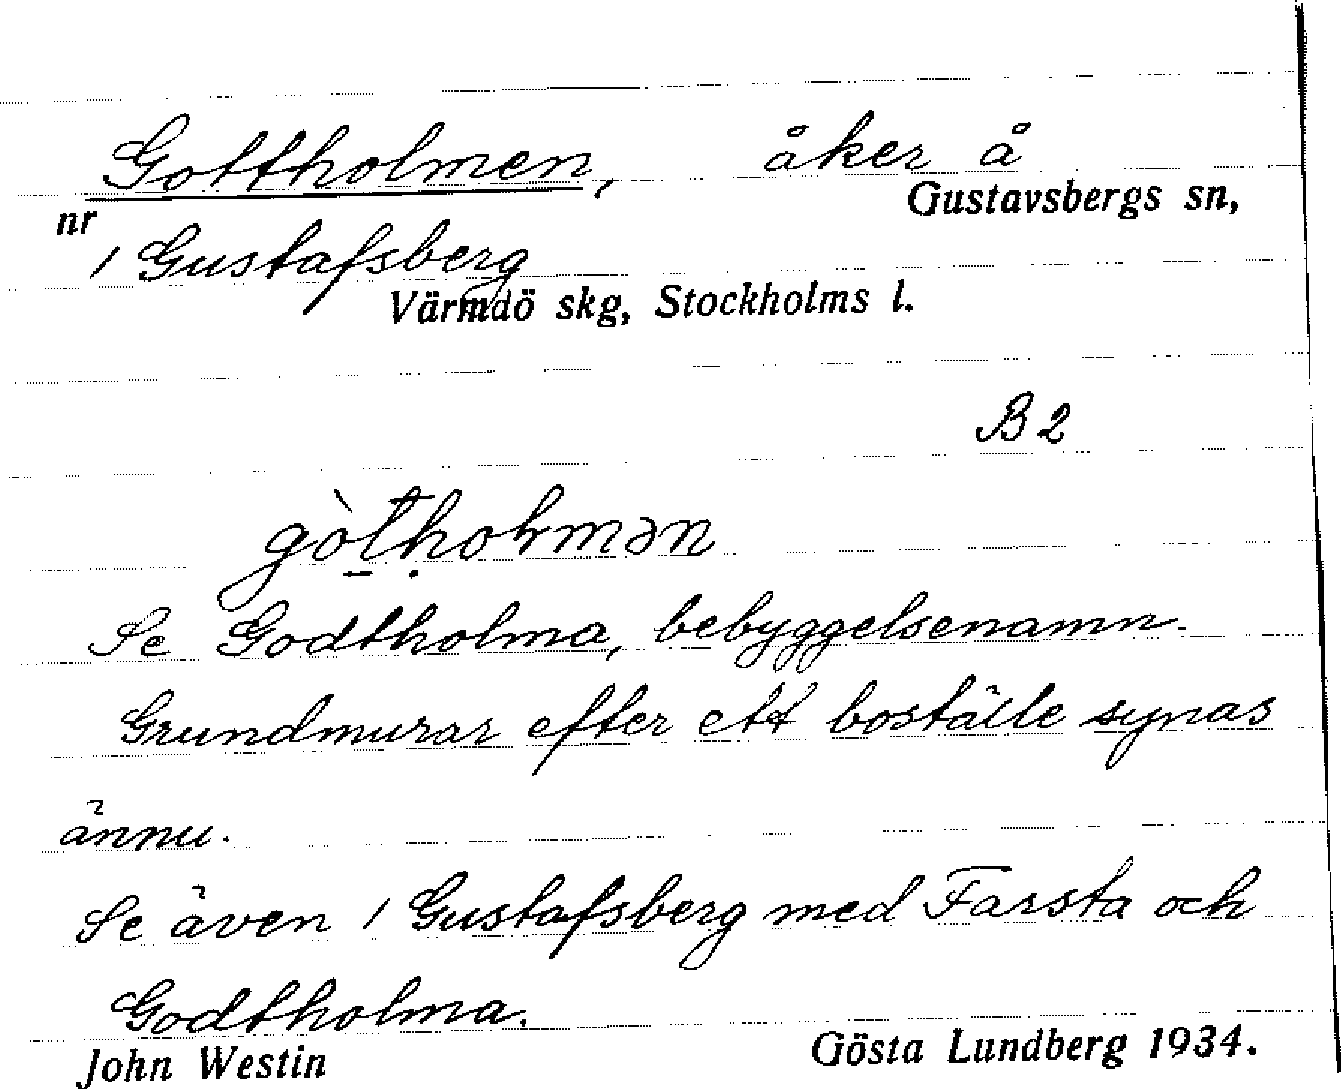 Gottholmen, åker å
Gustavsbergs sn,
nr
1 Gustafsberg
Värmdö skg, Stockholms l.
B 2
Se Godtholma, bebyggelsenamn.
Grundmurar efter ett boställe synas
ännu.
Se även 1 Gustafsberg med Farsta och
Godtholma.
John Westin Gösta Lundberg 1934.